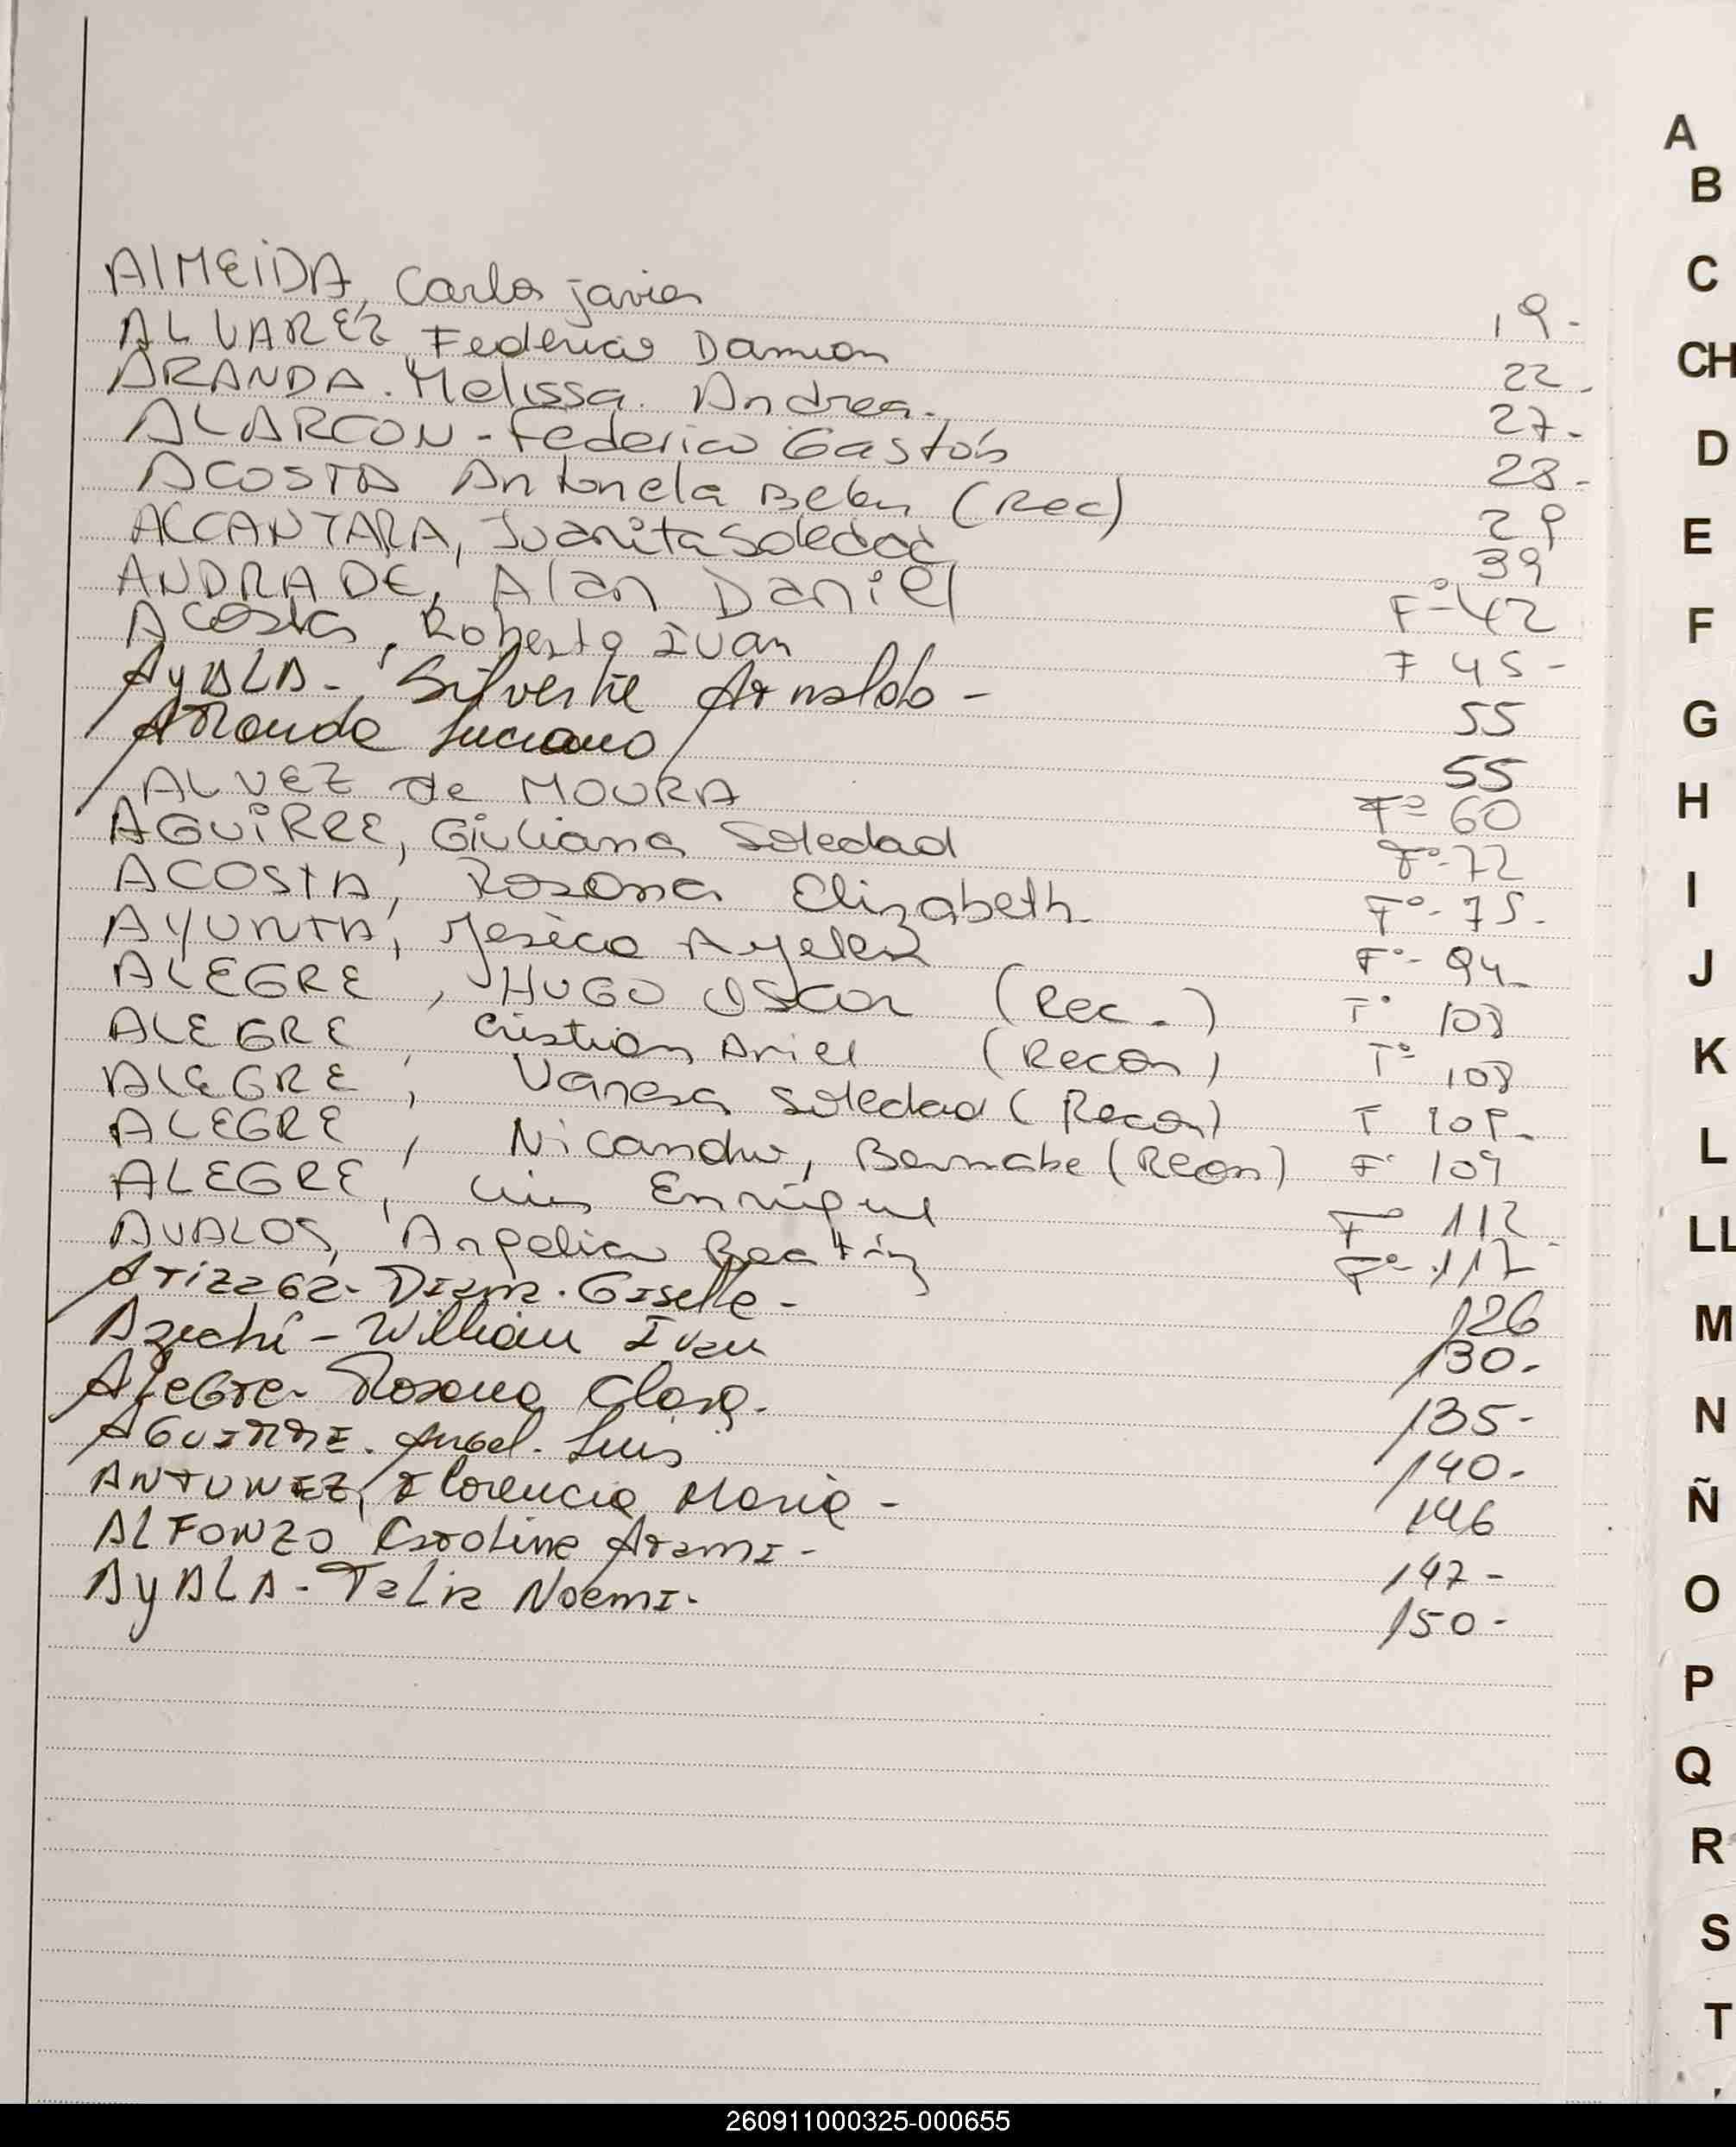 ALMEIDA, Carlos javier 19-
ALVAREZ, Federico Damion 22-
ARANDA. Melissa. Andrea. 27-
ALARCON - Federico Gastón 28-
ACOSTA Antonela Belen (Rec) 29
ALCANTARA, Juanita Soledad 39
ANDRADE, Alan Daniel Fº-42
Acosta, Roberto Ivan F 45-
AyALA-, Silvestre Arnaldo - 55
Aranda Luciano 55
ALVEZ de MOURA Fº 60
AGUIRRE, Giuliana Soledad Fº-72
ACOSTA, Rosana Elizabeth- Fº-75-
AYUNTA, Jesica Ayelen Fº- 94-
ALEGRE, HUGO OSCAR (Rec.-) Fº 108
ALEGRE, Cristian Ariel (Recon) Fº 108
ALEGRE, Vanesa Soledad (Recon) F 109-
ALEGRE, Nicandro, Bernabe (Recon) Fº 109
ALEGRE, Luis Enrique Fº 112
AVALOS, Angelica Beatriz Fº-117
Diana. Giselle- 126
Azechi - William Ivan 130-
Alegre- Roxana Clara- 135-
AGUIRRE. Angel. Luis 140-
ANTUNEZ, Florencia Maria - 146
ALFONZO Caroline Arami- 147-
AyALA- Noemi- 150-
A
B
C
CH
D
E
F
G
H
I
J
K
L
LL
M
N
Ñ
O
P
Q
R
S
T
260911000325-000655